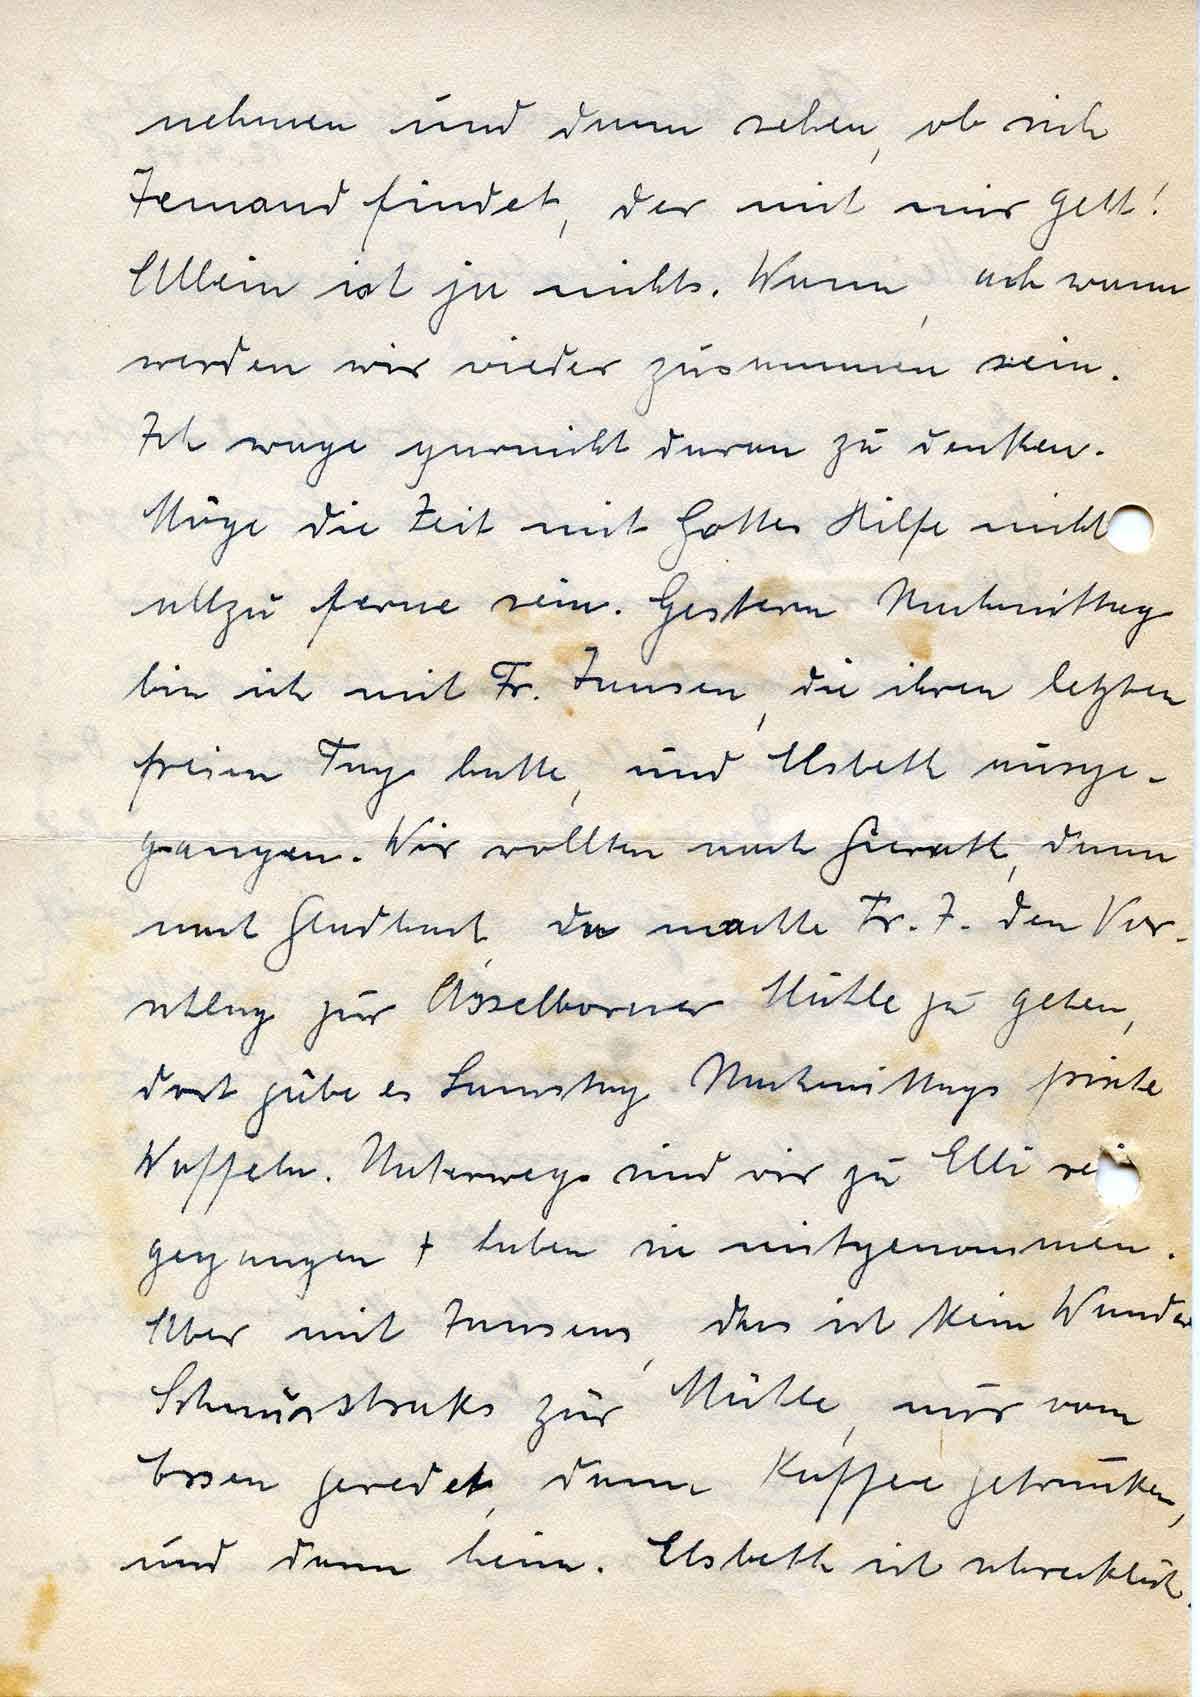 nehmen und dann sehen, ob sich
Jemand findet, der mit mir geht!
Allein ist ja nichts. Wann, ach wann
werden wir wieder zusammen sein.
Ich wage garnicht daran zu denken.
Möge die Zeit mit Gottes Hilfe nicht
allzu ferne sein. Gestern Nachmittag
bin ich mit Fr. Jansen, die ihren letzten
freien Tag hatte, und Elsbeth ausge-
gangen. Wir wollten nach Gierath, dann
nach Gladbach, da machte Fr. J. den Vor-
schlag zur Asselborner Mühle zu gehen,
dort gäbe es Samstag Nachmittags frische
Waffeln. Unterwegs sind wir zu Elli rein
gegangen + haben sie mitgenommen.
Aber mit Jansens, das ist kein Wandern
Schnurstraks zur Mühle, nur vom
Essen geredet, dann Kaffee getrunken,
und dann heim. Elsbeth ist schrecklich.